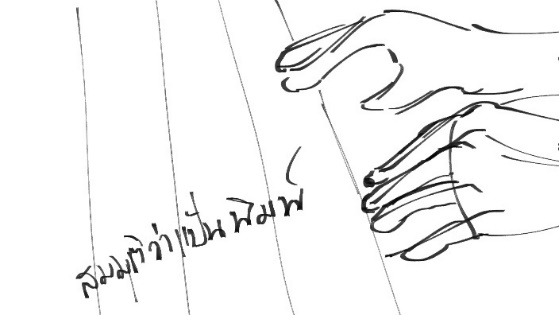 สมมติว่าเป็นพิมพ์